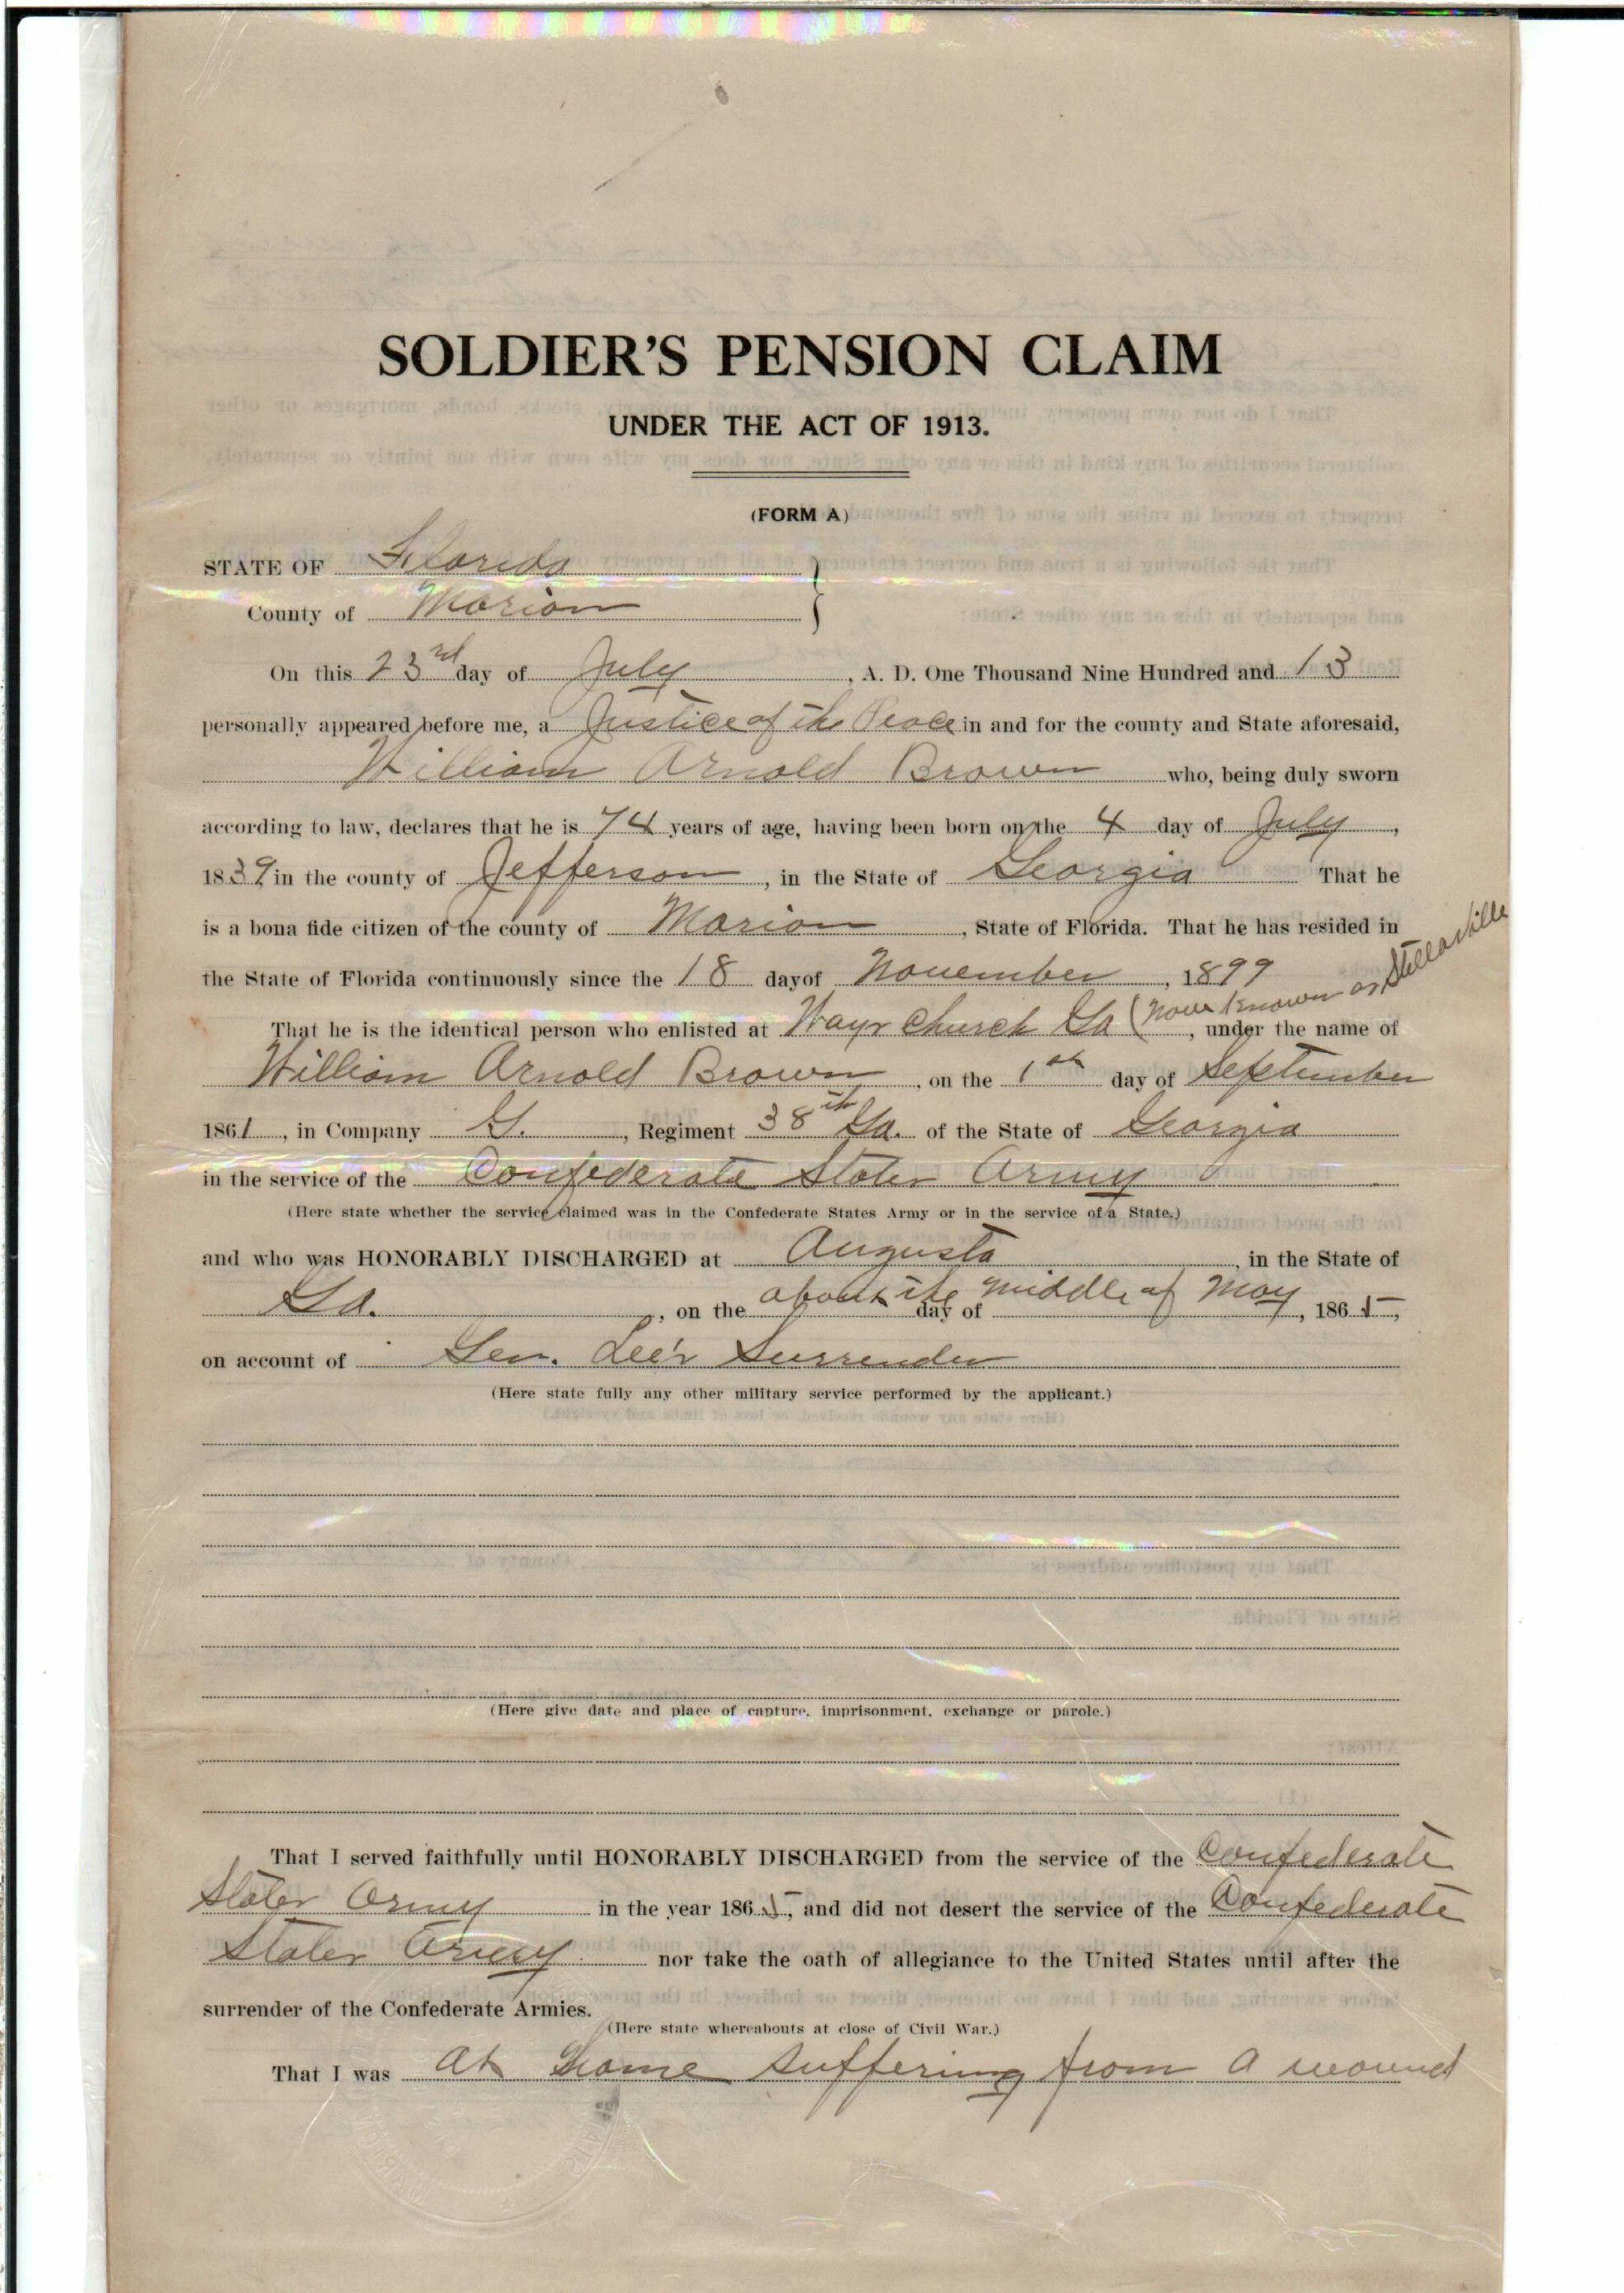 SOLDIER'S PENSION CLAIM
UNDER THE ACT OF 1913.
(FORM A)
STATE OF Florida
County of Marion
On this 23rd day of July, A. D. One Thousand Nine Hundred and 13
personally appeared before me, a Justice of the Peace in and for the county and State aforesaid,
William Arnold Brown who, being duly sworn
according to law, declares that he is 74 years of age, having been born on the 4 day of July,
1839 in the county of Jefferson, in the State of Georgia That he
is a bona fide citizen of the county of Marion, State of Florida. That he has resided in
the State of Florida continuously since the 18 day of November, 1899
That he is the identical person who enlisted at Ways Church Ga (now known as Stellaville, under the name of
William Arnold Brown, on the 1st day of September
1861, in Company G., Regiment 38th Ga. of the State of Georgia
in the service of the Confederate States Army
(Here state whether the service claimed was in the Confederate States Army or in the service of a State.)
and who was HONORABLY DISCHARGED at Augusta, in the State of
Ga., on the about the day of middle of May, 1865,
on account of Gen. Lee's Surrender
(Here state fully any other military service performed by the applicant.)
(Here give date and place of capture, imprisonment, exchange or parole.)
That I served faithfully until HONORABLY DISCHARGED from the service of the Confederate
States Army in the year 1865, and did not desert the service of the Confederate
States Army nor take the oath of allegiance to the United States until after the
surrender of the Confederate Armies.
(Here state whereabouts at close of Civil War.)
That I was at home suffering from a wound